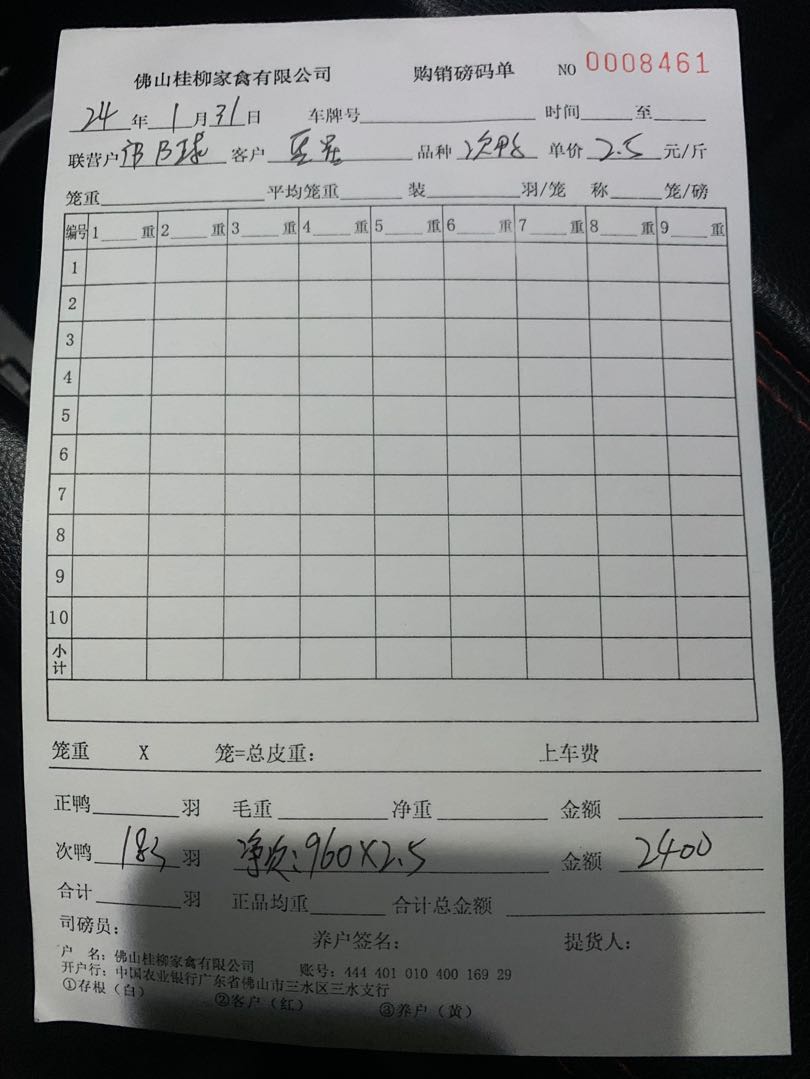 佛山桂柳家禽有限公司 购销磅码单 NO 0008461
24年1月31日 车牌号 时间 至
联营户 客户 品种 次鸭 单价 2.5 元/斤
笼重 平均笼重 装 羽/笼 称 笼/磅
编号 1 重 2 重 3 重 4 重 5 重 6 重 7 重 8 重 9 重
1
2
3
4
5
6
7
8
9
10
小计
笼重 X 笼=总皮重: 上车费
正鸭 羽 毛重 净重 金额
次鸭 183 羽 净次:960X2.5 金额 2400
合计 羽 正品均重 合计总金额
司磅员: 养户签名: 提货人:
户 名: 佛山桂柳家禽有限公司 账号: 444 401 010 400 169 29
开户行: 中国农业银行广东省佛山市三水区三水支行
①存根(白) ②客户(红) ③养户(黄)